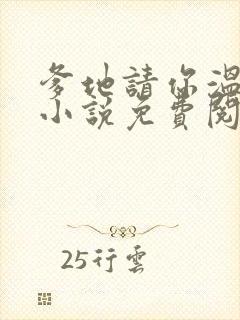 爹地請你溫
小說免費閱
25行雲